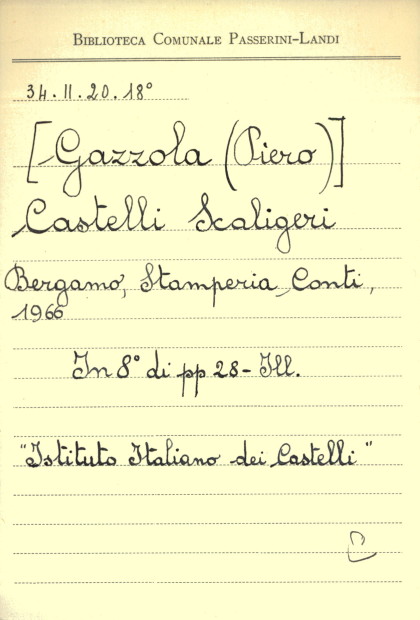 BIBLIOTECA COMUNALE PASSERINI-LANDI
34.II.20.18°
[Gazzola (Piero)]
Castelli Scaligeri
Bergamo, Stamperia Conti,
1966
In 8° di pp 28 - Ill.
"Istituto Italiano dei Castelli"